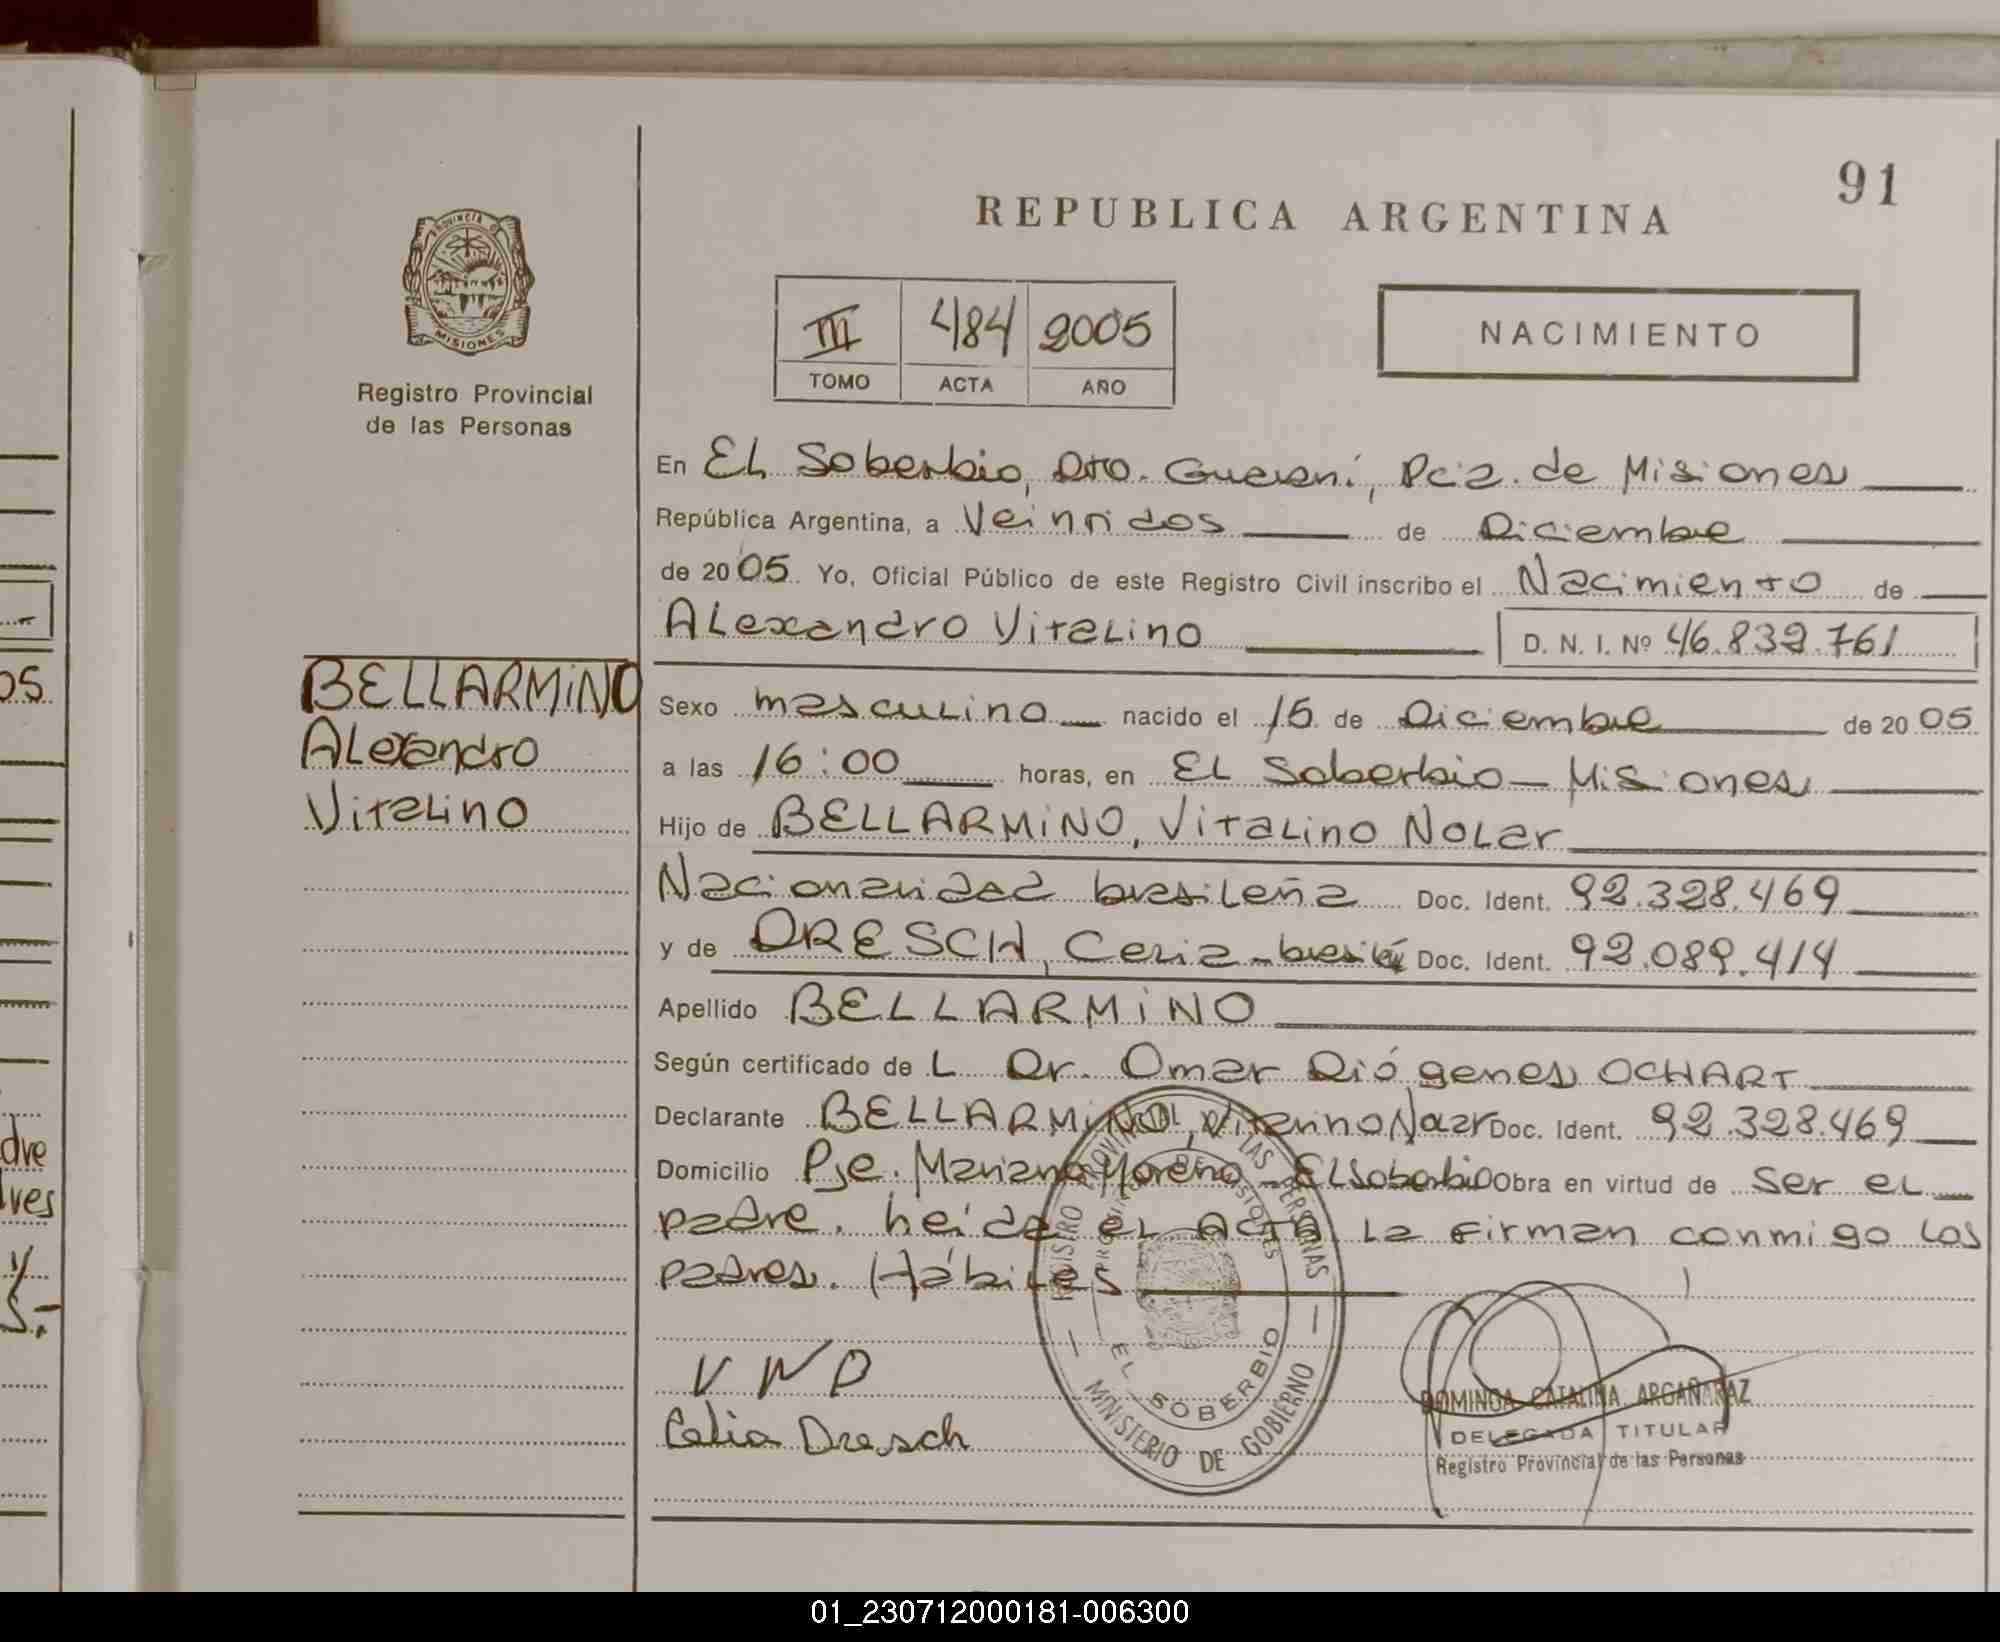 91
REPUBLICA ARGENTINA
PROVINCIA DE
MISIONES
Registro Provincial
de las Personas
III 484 2005
TOMO ACTA AÑO
NACIMIENTO
En EL Soberbio, Dto. Guaraní, Pcia. de Misiones
República Argentina, a Veintidos de Diciembre
de 2005. Yo, Oficial Público de este Registro Civil inscribo el Nacimiento de
Alexandro Vitalino D. N. I. Nº 46.832.761
BELLARMINO
Alexandro
Vitalino
Sexo masculino nacido el 15 de Diciembre de 2005
a las 16:00 horas, en EL Soberbio - Misiones
Hijo de BELLARMINO, Vitalino Nolar
Nacionalidad brasileña Doc. Ident. 92.328.469
y de DRESCH, Celia - Doc. Ident. 92.089.414
Apellido BELLARMINO
Según certificado de L Dr. Omar Diógenes OCHART
Declarante BELLARMINO, Vitalino Doc. Ident. 92.328.469
Domicilio Pje. Mariano Moreno - El Soberbio Obra en virtud de Ser el
padre. Leída el Acta la firman conmigo los
padres. Hábiles
Celia Dresch
REGISTRO PROVINCIAL DE LAS PERSONAS
PROVINCIA DE MISIONES
EL SOBERBIO
MINISTERIO DE GOBIERNO
DOMINGA CATALINA ARGAÑARAZ
DELEGADA TITULAR
Registro Provincial de las Personas
05
dre
01_230712000181-006300